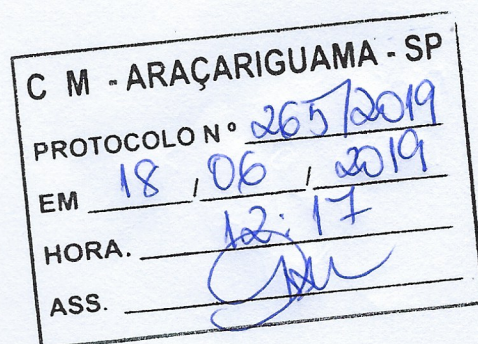 C M - ARAÇARIGUAMA - SP
PROTOCOLO Nº 265/2019
EM 18 / 06 / 2019
HORA. 12:17
ASS.